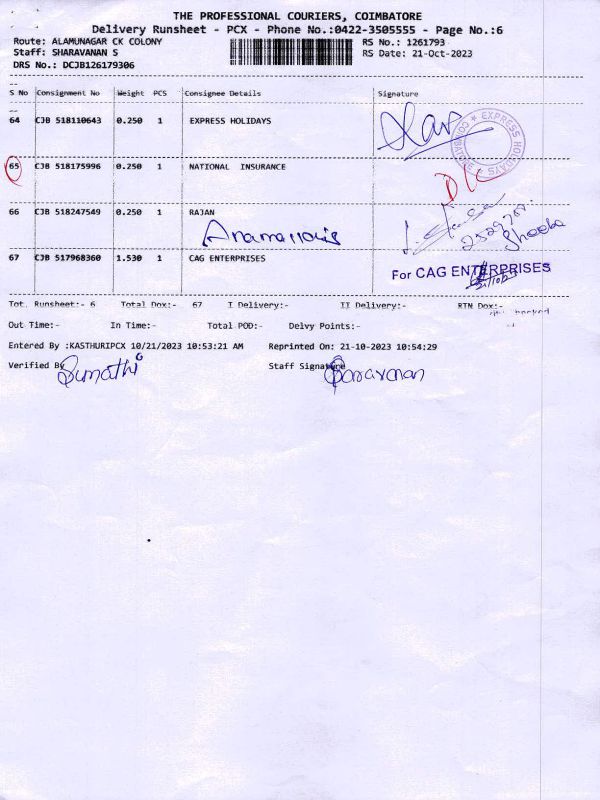 THE PROFESSIONAL COURIERS, COIMBATORE
Delivery Runsheet - PCX - Phone No.:0422-3505555 - Page No.:6
Route: ALAMUNAGAR CK COLONY RS No.: 1261793
Staff: SHARAVANAN S RS Date: 21-Oct-2023
DRS No.: DCJB126179306
S No Consignment No Weight PCS Consignee Details Signature
64 CJB 518110643 0.250 1 EXPRESS HOLIDAYS
EXPRESS HOLIDAYS COIMBATORE
65 CJB 518175996 0.250 1 NATIONAL INSURANCE
D/C
66 CJB 518247549 0.250 1 RAJAN
Sheeba
67 CJB 517968360 1.530 1 CAG ENTERPRISES
For CAG ENTERPRISES
Tot. Runsheet:- 6 Total Dox:- 67 I Delivery:- II Delivery:- RTN Dox:-
Out Time:- In Time:- Total POD:- Delvy Points:-
Entered By :KASTHURIPCX 10/21/2023 10:53:21 AM Reprinted On: 21-10-2023 10:54:29
Verified By Sumathi Staff Signature Saravanan